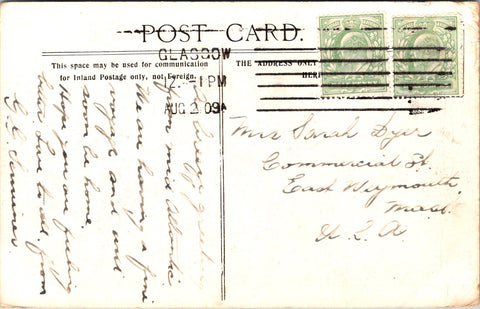 POST CARD.
This space may be used for communication
for Inland Postage only, not Foreign.
THE ADDRESS ONLY
HERE
GLASGOW
1 PM
AUG 2 09
greeting
from mid Atlantic
We are having a fine
voyage and will
soon be home.
Hope you are feeling
better Love to all from
Mrs Sarah Dyer
Commercial St.
East Weymouth
Mass.
U.S.A